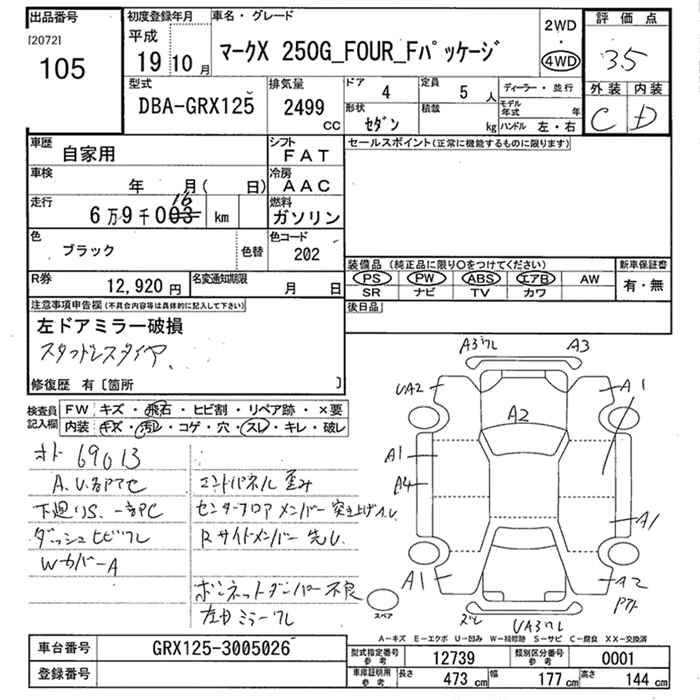 出品番号
[2072]
105
初度登録年月
平成
19年10月
車名・グレード
マークX 250G_FOUR_Fパッケージ
2WD
・
4WD
評価点
3.5
外装 内装
C D
型式
DBA-GRX125
排気量
2499
CC
ドア 4
定員 5 人
形状 セダン
積載 kg
ディーラー・並行
モデル年式 年
ハンドル 左・右
車歴 自家用
シフト FAT
セールスポイント(正常に機能するものに限ります)
車検 年 月( 日)
冷房 AAC
走行 6万9千003 km
16
燃料 ガソリン
色 ブラック 色替
色コード 202
R券 12,920円
名変通知期限 月 日
装備品 (純正品に限り○をつけてください)
新車保証書
PS PW ABS エアB AW
SR ナビ TV カワ
有・無
後日品
注意事項申告欄 (不具合内容等は具体的に記入して下さい)
左ドアミラー破損
スタッドレスタイヤ
修復歴 有〔箇所 〕
検査員記入欄
FW キズ・飛石・ヒビ割・リペア跡・×要
内装 キズ・汚レ・コゲ・穴・スレ・キレ・破レ
オド 69013
A.U.各部アセ
下廻りS. 一部PC
ダッシュヒビワレ
WカバーA
エンドパネル歪み
センターフロアメンバー突き上げA.U
Rサイドメンバー先U
ボンネットダンパー不良
左ドミラーワレ
A3ワレ
A3
UA2
A1
A2
A1
A4
A1
A1
A2
スペア
ズレ
UA3ワレ
A-キズ E-エクボ U-凹み W-補修跡 S-サビ C-腐食 XX-交換済
車台番号 GRX125-3005026
登録番号
型式指定番号 参考 12739
類別区分番号 参考 0001
車庫証明用 参考 長さ 473 cm 幅 177 cm 高さ 144 cm